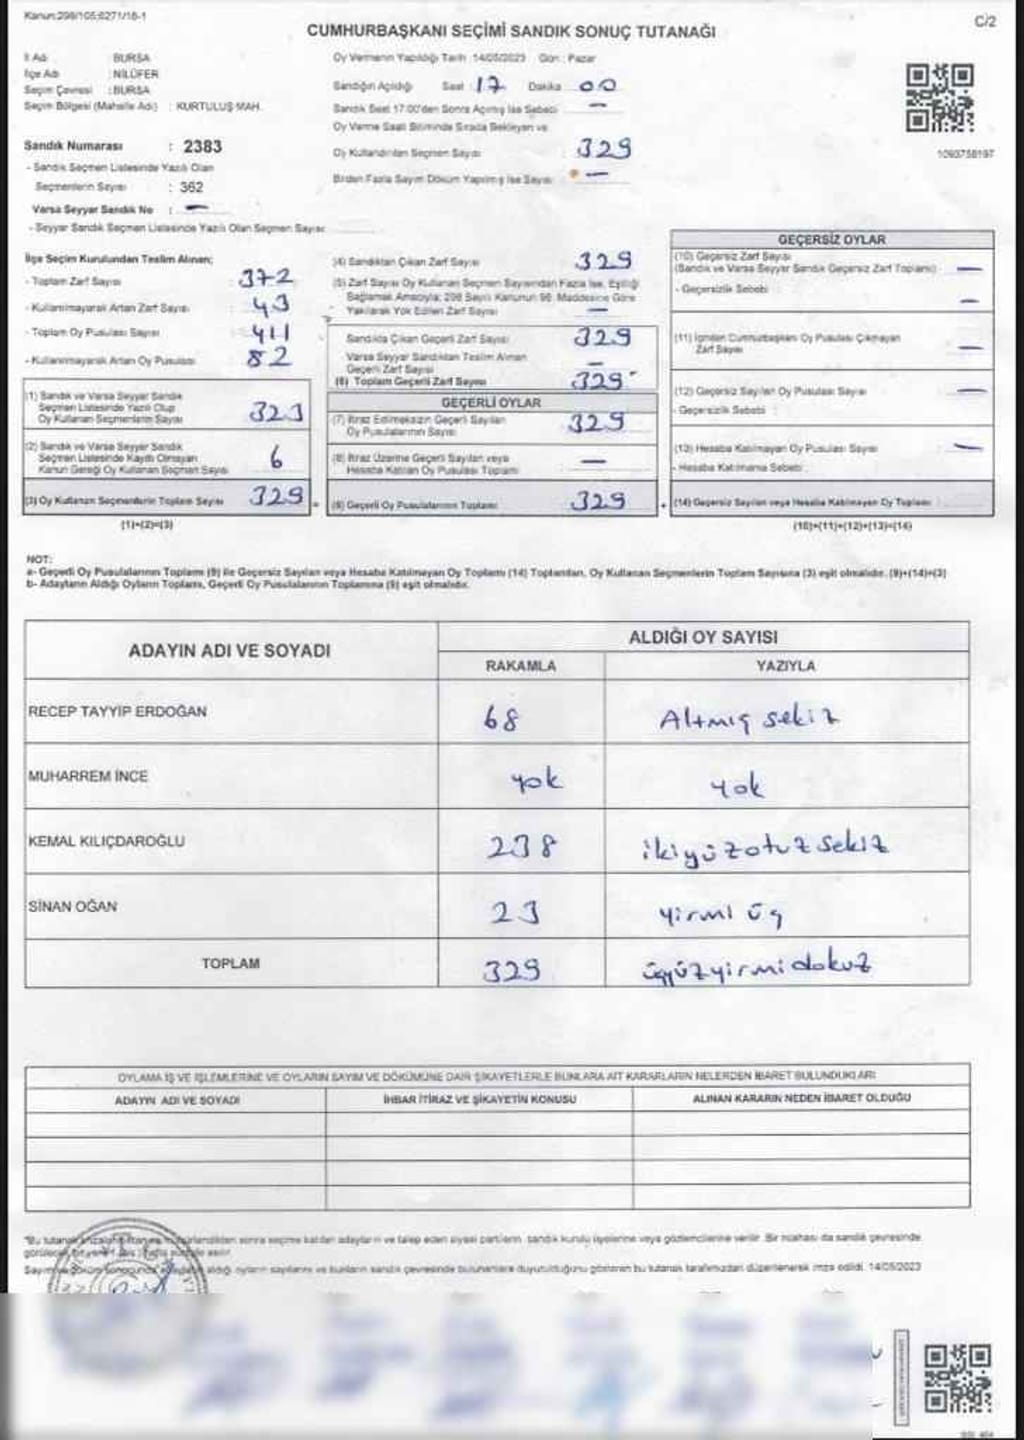 Kanun:298/105;6271/16-1
C/2
CUMHURBAŞKANI SEÇİMİ SANDIK SONUÇ TUTANAĞI
İl Adı : BURSA
İlçe Adı : NİLÜFER
Seçim Çevresi : BURSA
Seçim Bölgesi (Mahalle Adı) : KURTULUŞ MAH.
Sandık Numarası : 2383
- Sandık Seçmen Listesinde Yazılı Olan
Seçmenlerin Sayısı : 362
Varsa Seyyar Sandık No : —
- Seyyar Sandık Seçmen Listesinde Yazılı Olan Seçmen Sayısı:
Oy Vermenin Yapıldığı Tarih :14/05/2023 Gün : Pazar
Sandığın Açıldığı Saat : 17 Dakika 00
Sandık Saat 17:00'den Sonra Açılmış İse Sebebi : —
Oy Verme Saati Bitiminde Sırada Bekleyen ve
Oy Kullandırılan Seçmen Sayısı : 329
Birden Fazla Sayım Döküm Yapılmış İse Sayısı : —
1093758197
İlçe Seçim Kurulundan Teslim Alınan;
- Toplam Zarf Sayısı : 372
- Kullanılmayarak Artan Zarf Sayısı : 43
- Toplam Oy Pusulası Sayısı : 411
- Kullanılmayarak Artan Oy Pusulası : 82
(1) Sandık ve Varsa Seyyar Sandık
Seçmen Listesinde Yazılı Olup
Oy Kullanan Seçmenlerin Sayısı 323
(2) Sandık ve Varsa Seyyar Sandık
Seçmen Listesinde Kaydı Olmayan
Kanun Gereği Oy Kullanan Seçmen Sayısı 6
(3) Oy Kullanan Seçmenlerin Toplam Sayısı 329
(1)+(2)=(3)
(4) Sandıktan Çıkan Zarf Sayısı 329
(5) Zarf Sayısı Oy Kullanan Seçmen Sayısından Fazla İse, Eşitliği
Sağlamak Amacıyla; 298 Sayılı Kanunun 98. Maddesine Göre
Yakılarak Yok Edilen Zarf Sayısı —
Sandıkta Çıkan Geçerli Zarf Sayısı 329
Varsa Seyyar Sandıktan Teslim Alınan
Geçerli Zarf Sayısı —
(6) Toplam Geçerli Zarf Sayısı 329
GEÇERLİ OYLAR
(7) İtiraz Edilmeksizin Geçerli Sayılan
Oy Pusulalarının Sayısı 329
(8) İtiraz Üzerine Geçerli Sayılan veya
Hesaba Katılan Oy Pusulası Toplamı —
(9) Geçerli Oy Pusulalarının Toplamı 329
GEÇERSİZ OYLAR
(10) Geçersiz Zarf Sayısı
(Sandık ve Varsa Seyyar Sandık Geçersiz Zarf Toplamı) : —
- Geçersizlik Sebebi : —
(11) İçinden Cumhurbaşkanı Oy Pusulası Çıkmayan
Zarf Sayısı —
(12) Geçersiz Sayılan Oy Pusulası Sayısı : —
- Geçersizlik Sebebi :
(13) Hesaba Katılmayan Oy Pusulası Sayısı : —
- Hesaba Katılmama Sebebi :
(14) Geçersiz Sayılan veya Hesaba Katılmayan Oy Toplamı
(10)+(11)+(12)+(13)=(14)
NOT:
a- Geçerli Oy Pusulalarının Toplamı (9) ile Geçersiz Sayılan veya Hesaba Katılmayan Oy Toplamı (14) Toplamları, Oy Kullanan Seçmenlerin Toplam Sayısına (3) eşit olmalıdır. (9)+(14)=(3)
b- Adayların Aldığı Oyların Toplamı, Geçerli Oy Pusulalarının Toplamına (9) eşit olmalıdır.
ADAYIN ADI VE SOYADI ALDIĞI OY SAYISI
RAKAMLA YAZIYLA
RECEP TAYYİP ERDOĞAN 68 Altmış sekiz
MUHARREM İNCE yok yok
KEMAL KILIÇDAROĞLU 238 ikiyüzotuzsekiz
SİNAN OĞAN 23 yirmi üç
TOPLAM 329 üçyüzyirmidokuz
OYLAMA İŞ VE İŞLEMLERİNE VE OYLARIN SAYIM VE DÖKÜMÜNE DAİR ŞİKAYETLERLE BUNLARA AİT KARARLARIN NELERDEN İBARET BULUNDUKLARI
ADAYIN ADI VE SOYADI İHBAR İTİRAZ VE ŞİKAYETİN KONUSU ALINAN KARARIN NEDEN İBARET OLDUĞU
sonra seçime katılan adayların ve talep eden siyasi partilerin, sandık kurulu üyelerine veya gözlemcilerine verilir. Bir nüshası da sandık çevresinde
aldığı oyların sayılarını ve bunların sandık çevresinde bulunanlara duyurulduğunu gösteren bu tutanak tarafımızdan düzenlenerek imza edildi. 14/05/2023